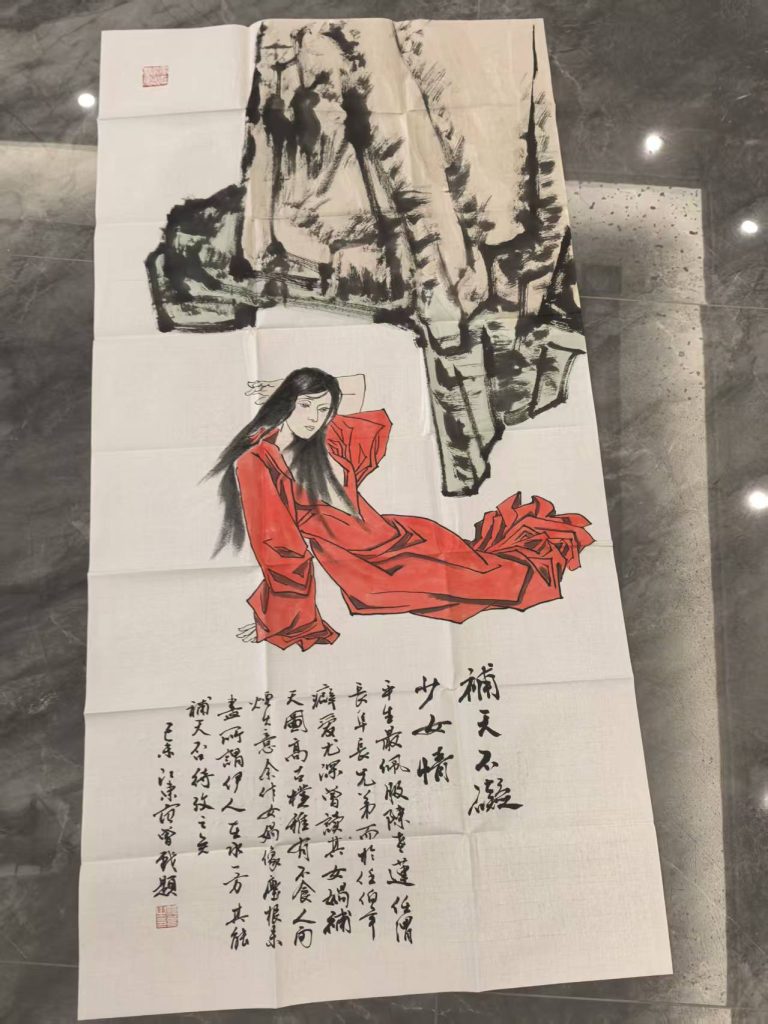 補天不礙
少女情
平生最佩服陳老蓮任渭
長阜長兄弟而於任伯年
癖愛尤深曾談其女媧補
天圖高古樸雅有不食人间
煙火意余作女媧像塵根未
盡所謂伊人在水一方其能
補天否待攷之矣
己未江東范曾戲題